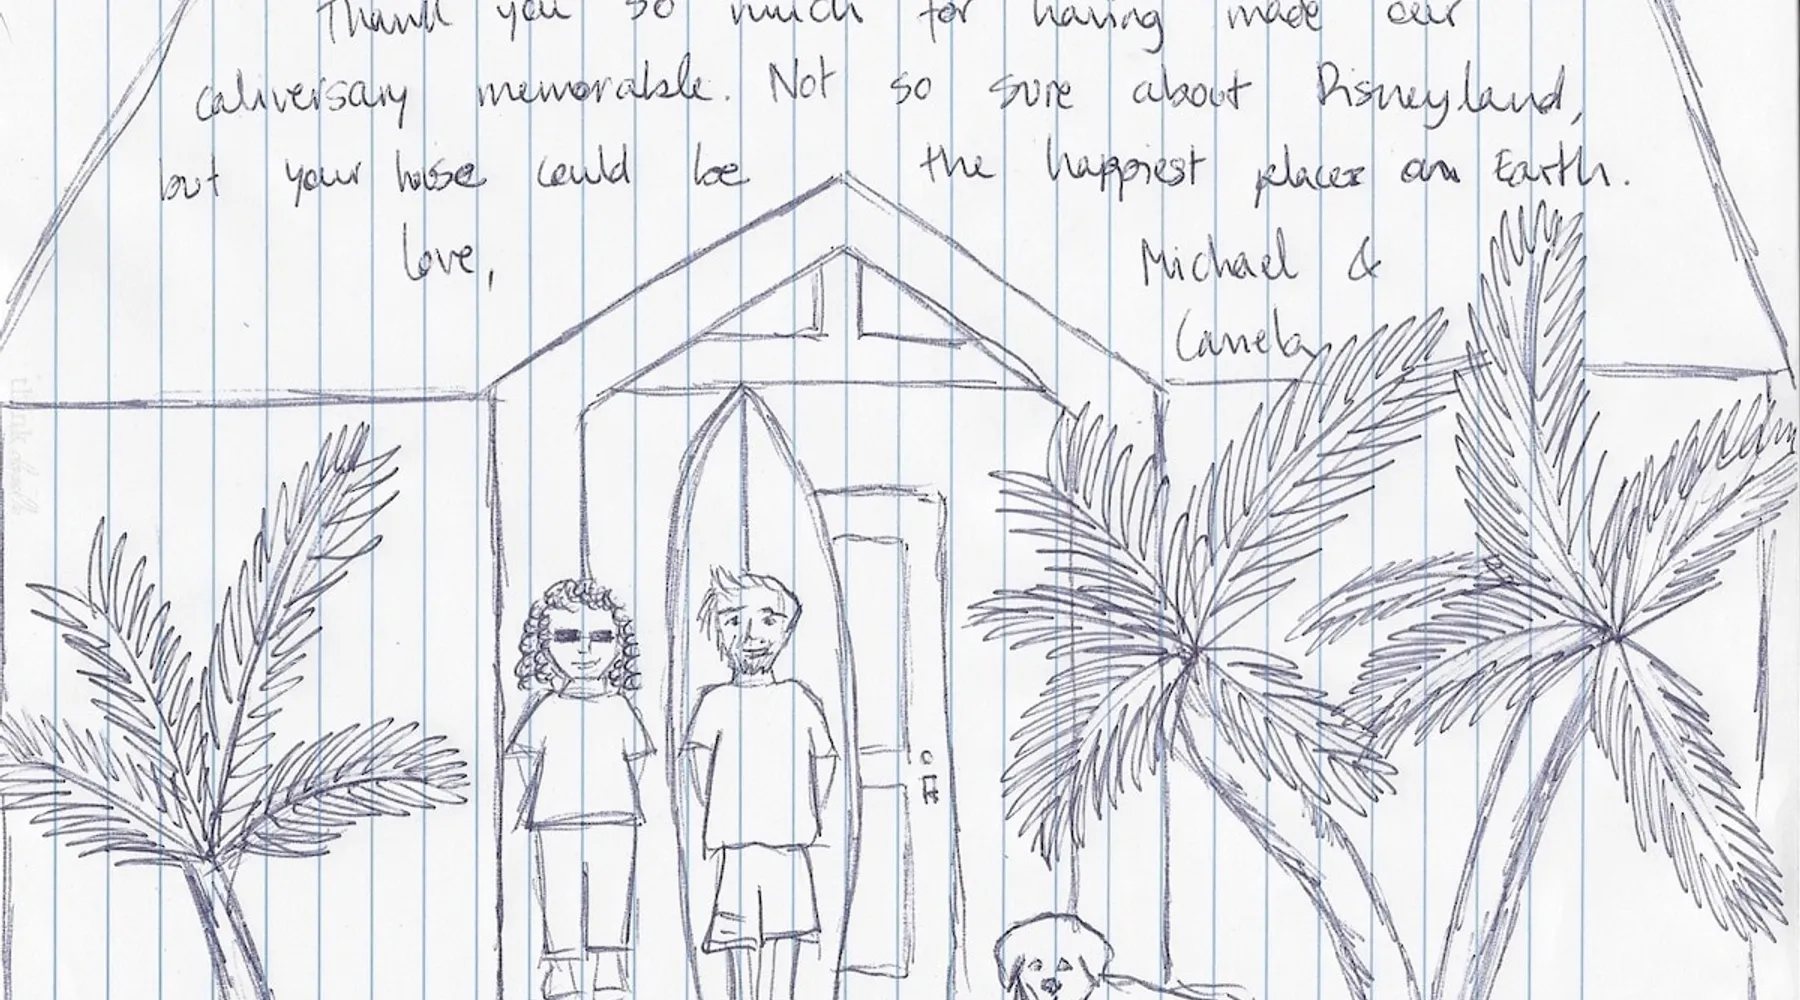 Thank you so much for having made our
caliversary memorable. Not so sure about Disneyland,
but your house could be the happiest places on Earth.
Love, Michael &